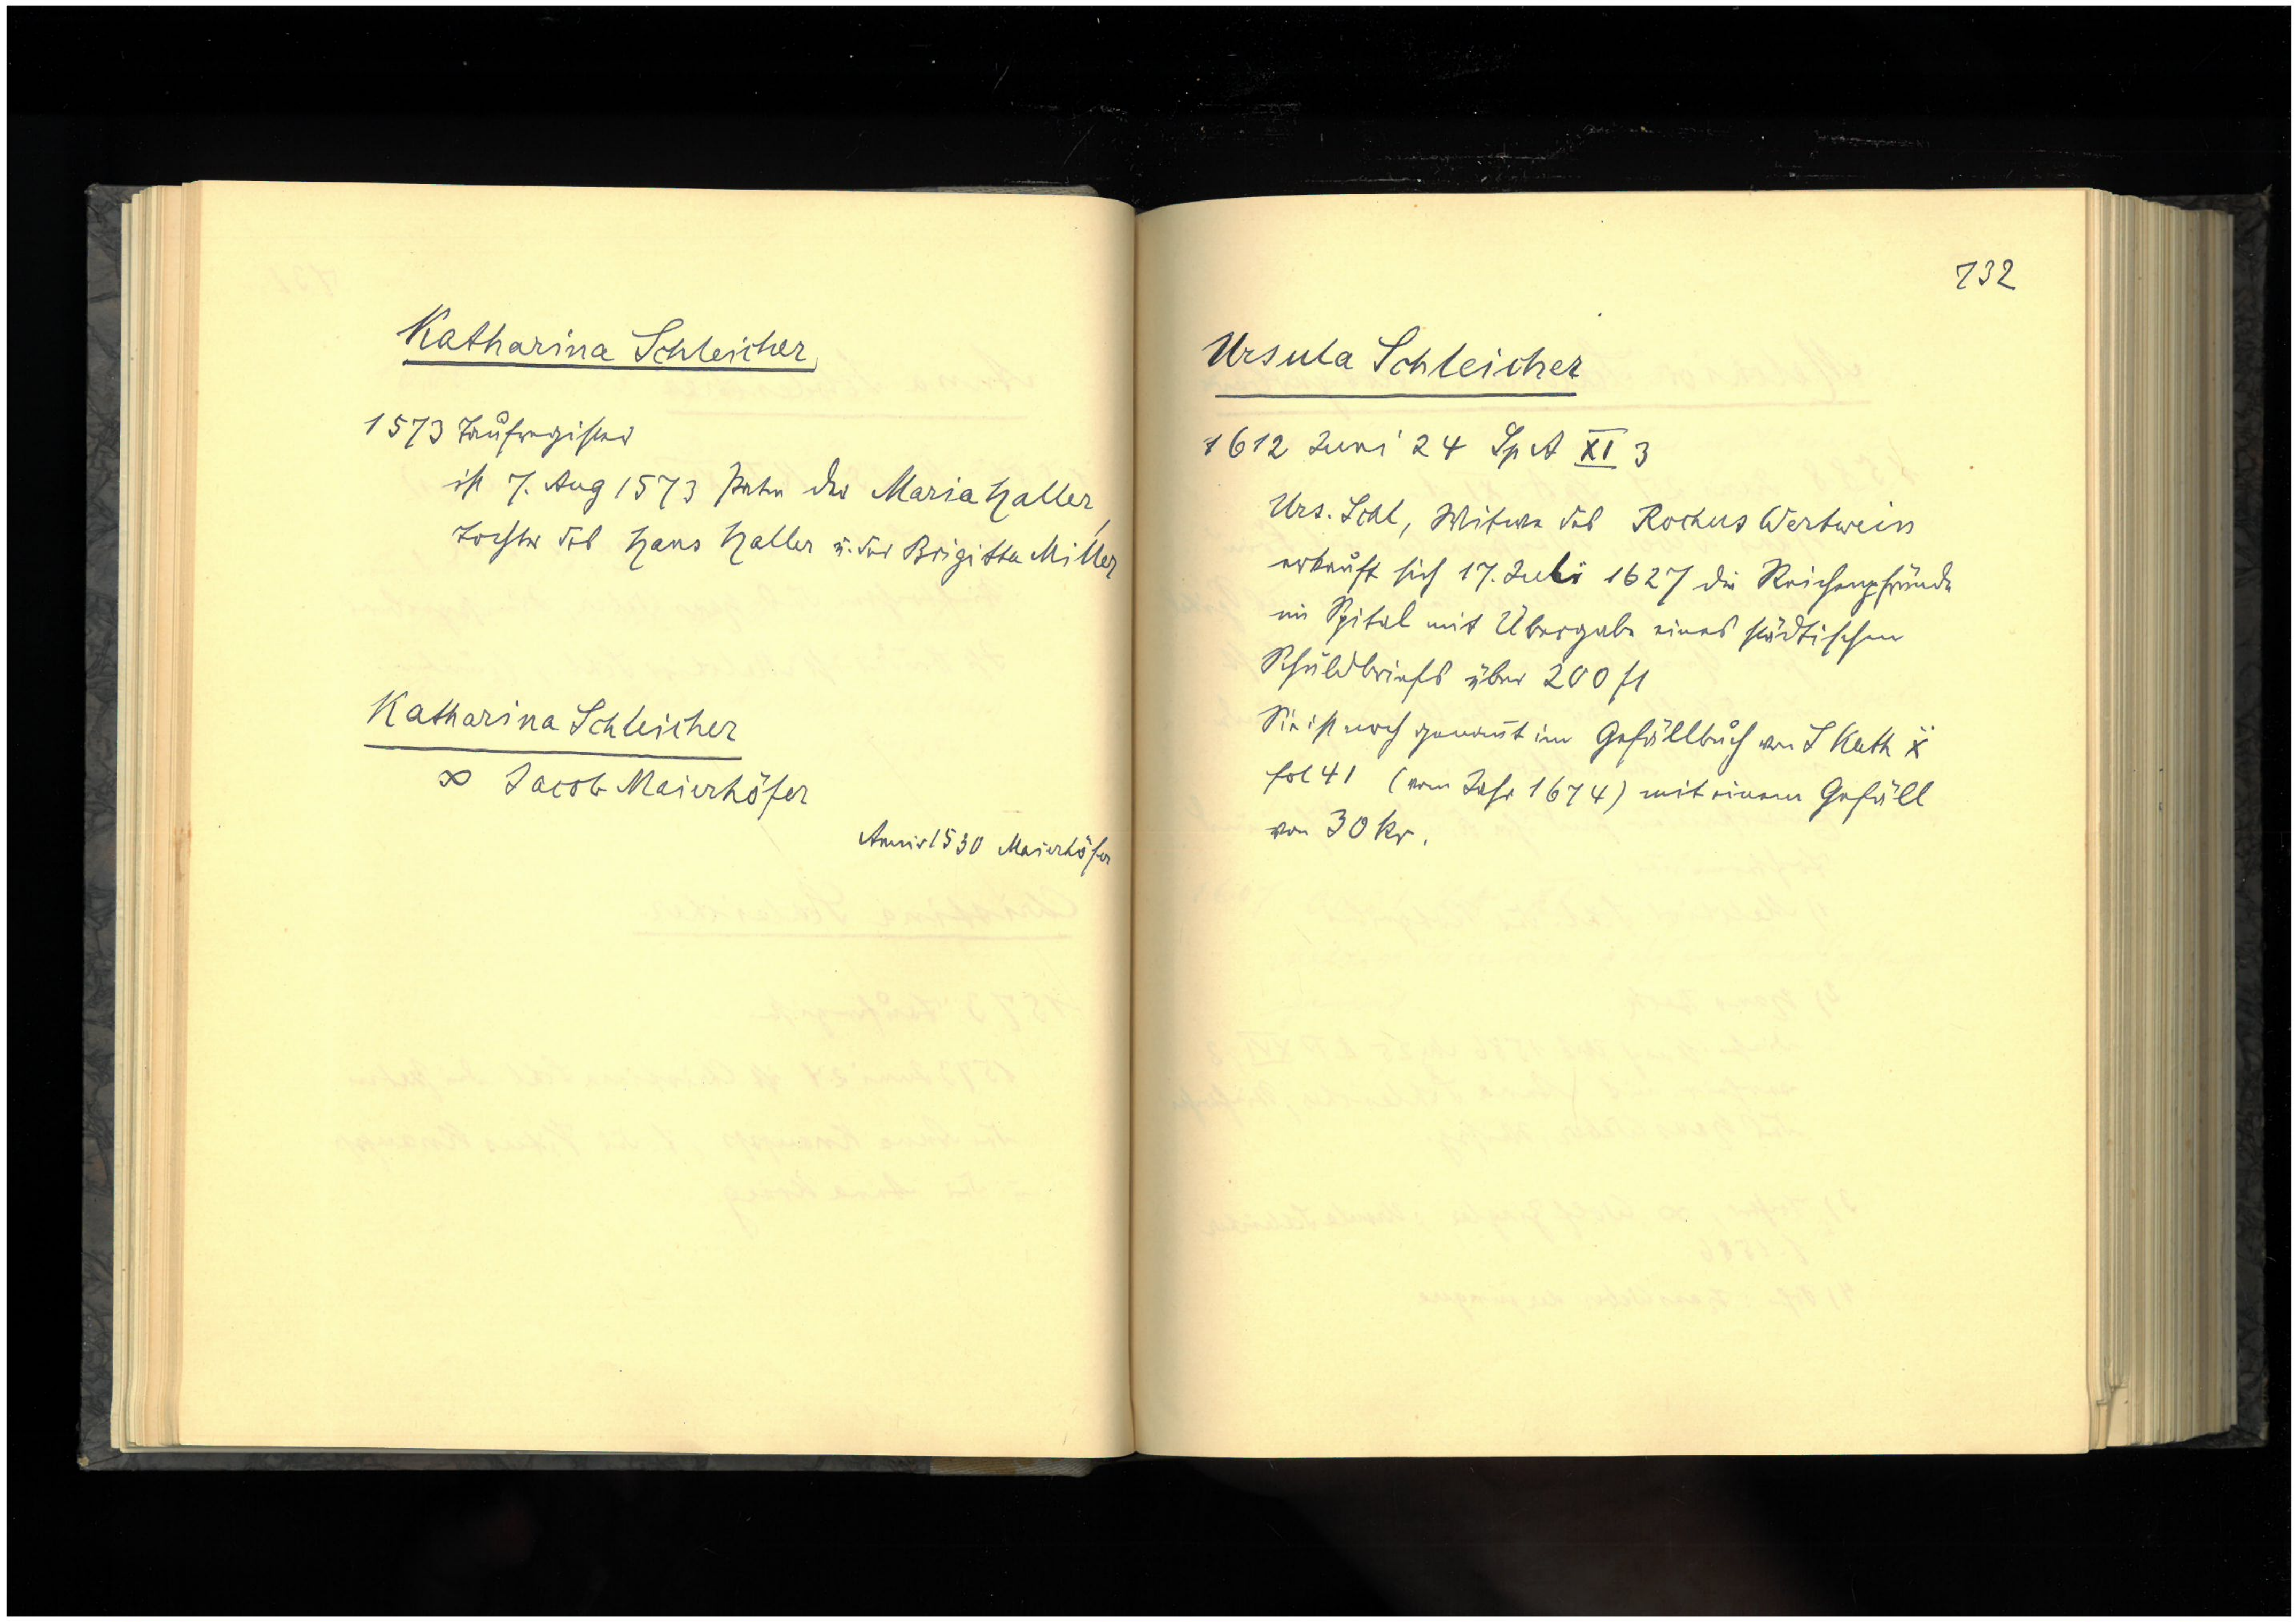 Katharina Schleicher
1573 Taufregister
ist 7. Aug 1573 Patin der Maria Haller,
Tochter des Hans Haller u. der Brigitta Miller
Katharina Schleicher
∞ Jacob Maierhöfer
1530 Maierhöfer
732
Ursula Schleicher
1612 Juni 24 Sp A XI 3
Urs. Schl, Witwe des Rochus Wertwein
erkauft sich 17. Juli 1627 die Reichenpfründe
im Spital mit Übergabe eines städtischen
Schuldbriefs über 200 fl
Sie ist noch genannt im Gefällbuch von S Kath X
fol 41 (vom Jahr 1674) mit einem Gefäll
von 30 kr.